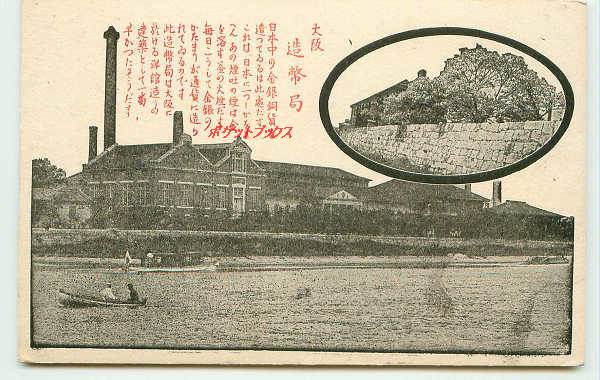 大阪
造幣局
日本中の金銀銅貨を
造つてゐるは此處だけで
これは日本に一つしかな
い、あの煙吐の煙は金
を溶す釜の火煙だす
毎日こうして金銀の
かたまりが造貨に造ら
れてゐるのです
此造幣局は大阪に
於ける洋館造りの
建築として一番
早かつたそうだす
ポケットブックス